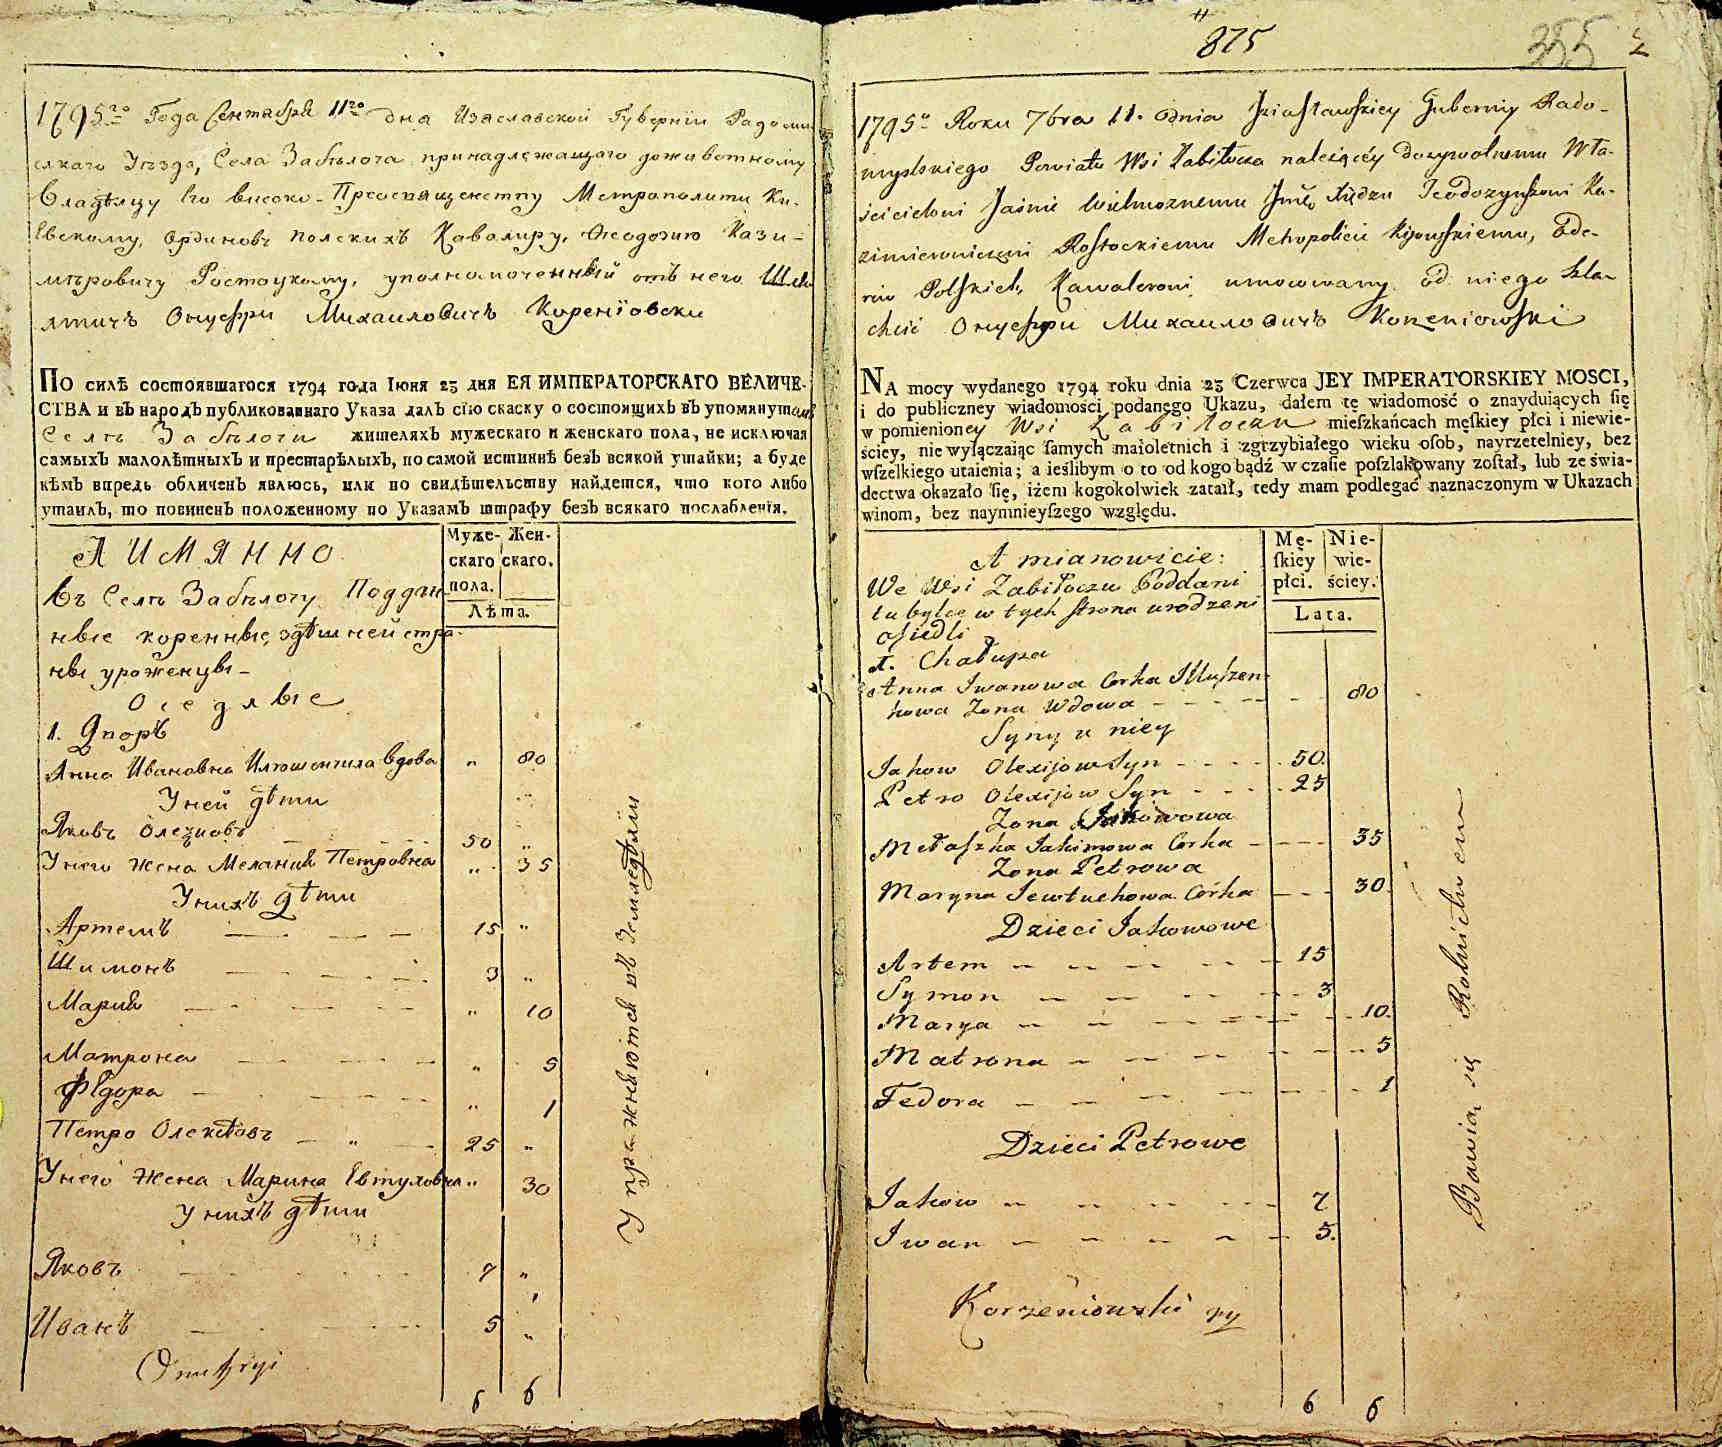 1795го Года Сентября 11го дня Изяславской Губернїи Радомы
слкаго Уѣзда, Села Забѣлоча принадлежащаго доживотному
Владѣлцу Его високо-Преосвященству Метрополиту Ки-
Евскому, Ординовъ полскихъ Кавалиру, Ѳеодозию Кази-
мѣровичу Ростоцкому, уполномоченный отъ него Шля
хтичъ Онуфри Михаиловичъ Коренїовски
По силѣ состоявшагося 1794 года Iюня 23 дня ЕЯ ИМПЕРАТОРСКАГО ВЕЛИЧЕ-
СТВА и въ народъ публикованнаго Указа далъ сїю скаску о состоящихъ въ упомянутомъ
Селѣ Забѣлочи жителяхъ мужескаго и женскаго пола, не исключая
самыхъ малолѣтныхъ и престарѣлыхъ, по самой истиннѣ безъ всякой утайки; а буде
кѣмъ впредь обличенъ явлюсь, или по свидѣтельству найдется, что кого либо
утаилъ, то повиненъ положенному по Указамъ штрафу безъ всякаго послабленїя.
Муже-скаго пола. Жен-скаго.
Лѣта.
А ИМЯННО
Въ Селѣ Забѣлочу Поддан
ные коренные здѣшней стра-
ны уроженцы-
Оседлые
1. Дворъ
Анна Ивановна Илюшенкова вдова " 80
У ней дѣти
Яковъ Олексиовъ 50 "
У него жена Мелания Петровна " 35
У нихъ дѣти
Артемъ 15 "
Шимонъ 3 "
Мария " 10
Матрона " 5
Федора " 1
Петро Олексѣовъ 25 "
У него жена Марина Евтуховна " 30
У нихъ дѣти
Яковъ 7 "
Иванъ 5 "
Упражняются въ Земледѣлїи
6 6
875
355
1795o Roku 7bra 11. dnia Iziasławskiey Gubernij Rado-
myslskiego Powiatu Wsi Zabiłocza należącéy dożywotnemu Wła-
ścicielowi Jaśnie Wielmożnemu Jmć Xiędzu Teodozyuszowi Ka-
zimierowiczowi Rostockiemu Metropolicie Kijowskiemu, Orde-
rów Polskich Kawalerowi umocowany od niego Szla-
chcić Онуфри Михаиловичъ Korzeniowski
NA mocy wydanego 1794 roku dnia 23 Czerwca JEY IMPERATORSKIEY MOSCI,
i do publiczney wiadomości podanego Ukazu, dałem tę wiadomość o znayduiących ſię
w pomienioney Wsi Zabiłoczu mieſzkańcach męſkiey płci i niewie-
ściey, nie wyłączaiąc ſamych maioletnich i zgrzybiałego wieku oſob, nayrzetelniey, bez
wſzelkiego utaienia; a ieślibym o to od kogo bądź w czaſie poſzlakowany zoſtał, lub ze świa-
dectwa okazało ſię, iżem kogokolwiek zataił, tedy mam podlegać naznaczonym w Ukazach
winom, bez naymnieyſzego względu.
Mę-ſkiéy płci. Nie-wie-ściey.
Lata.
A mianowicie:
We Wsi Zabiłoczu Poddani
tubylce w tych strona urodzeni
osiedli
1. Chałupa
Anna Iwanowa Corka Illuszen-
kowa Zona Wdowa 80
Syny u niey
Jakow Olexijow Syn 50.
Petro Olexijow Syn 25
Zona Jakowowa
Mełaszka Jakimowa Corka 35
Zona Petrowa
Maryna Jewtuchowa Córka 30.
Dzieci Jakowowe
Artem 15
Symon 3
Marya 10.
Matrona 5
Fedora 1
Dzieci Petrowe
Jakow 7
Iwan 5.
Bawia się Rolnictwem
Korzeniowski
6 6